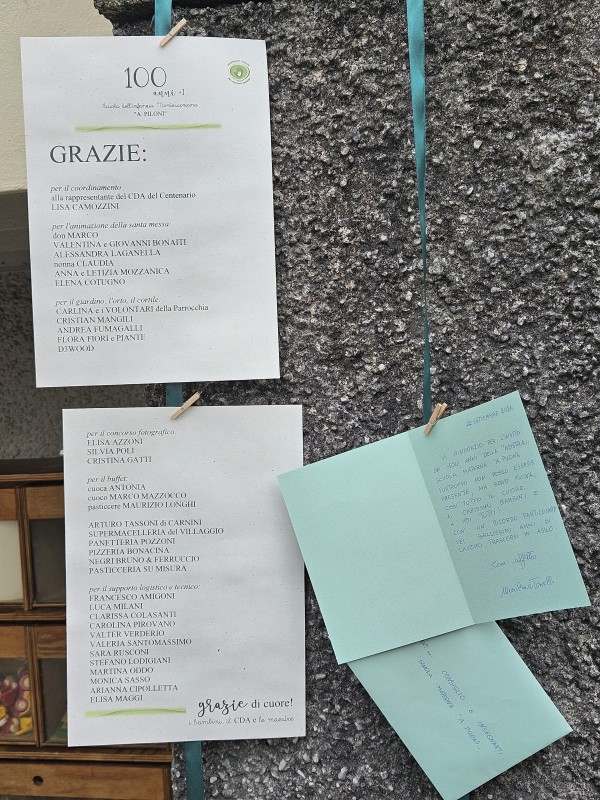 100
anni +1
Scuola dell'infanzia Montessoriana
"A. PILONI"
GRAZIE:
per il coordinamento
alla rappresentante del CDA del Centenario
LISA CAMOZZINI
per l'animazione della santa messa
don MARCO
VALENTINA e GIOVANNI BONAITI
ALESSANDRA LAGANELLA
nonna CLAUDIA
ANNA e LETIZIA MOZZANICA
ELENA COTUGNO
per il giardino, l'orto, il cortile:
CARLINA e i VOLONTARI della Parrocchia
CRISTIAN MANGILI
ANDREA FUMAGALLI
FLORA FIORI e PIANTE
D3WOOD
per il concorso fotografico:
ELISA AZZONI
SILVIA POLI
CRISTINA GATTI
per il buffet:
cuoca ANTONIA
cuoco MARCO MAZZOCCO
pasticcere MAURIZIO LONGHI
ARTURO TASSONI di CARNINI
SUPERMACELLERIA del VILLAGGIO
PANETTERIA POZZONI
PIZZERIA BONACINA
NEGRI BRUNO & FERRUCCIO
PASTICCERIA SU MISURA
per il supporto logistico e tecnico:
FRANCESCO AMIGONI
LUCA MILANI
CLARISSA COLASANTI
CAROLINA PIROVANO
VALTER VERDERIO
VALERIA SANTOMASSIMO
SARA RUSCONI
STEFANO LODIGIANI
MARTINA ODDO
MONICA SASSO
ARIANNA CIPOLLETTA
ELISA MAGGI
grazie di cuore!
i bambini, il CDA e le maestre
SETTEMBRE
VI RINGRAZIO PER L'INVITO
AI 100+1 ANNI DELLA "NOSTRA"
SCUOLA MATERNA "A. PILONI".
PURTROPPO NON POSSO ESSERE
PRESENTE, MA SONO VICINA
CON TUTTO IL CUORE,
AI CARISSIMI BAMBINI E
A VOI TUTTI.
CON UN RICORDO PARTICOLARE
DEI BELLISSIMI ANNI DI
LAVORO TRASCORSI IN ASILO
Con affetto
CONSIGLIO E INSEGNANTI
SCUOLA MATERNA "A. PILONI"